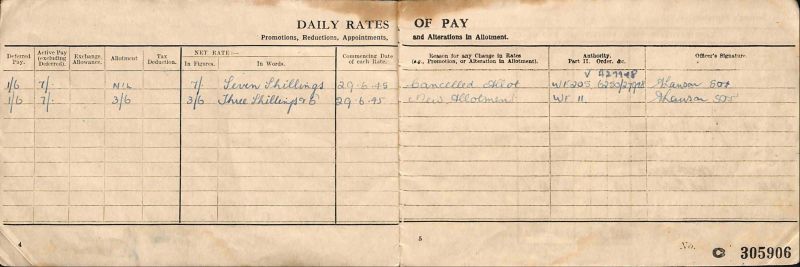 DAILY RATES OF PAY
Promotions, Reductions, Appointments, and Alterations in Allotment.
Deferred Pay. Active Pay (excluding Deferred). Exchange Allowance. Allotment Tax Deduction. NET RATE:— In Figures. In Words. Commencing Date of each Rate. Reason for any Change in Rates (e.g., Promotion, or Alteration in Allotment). Authority. Part II. Order, &c. Officer's Signature.
1/6 7/- NIL 7/- Seven Shillings 29.6.45 Cancelled Allot WF 205
1/6 7/- 3/6 3/6 Three Shillings & 6 29.6.45 New Allotment WF 11
4
5
No. C 305906